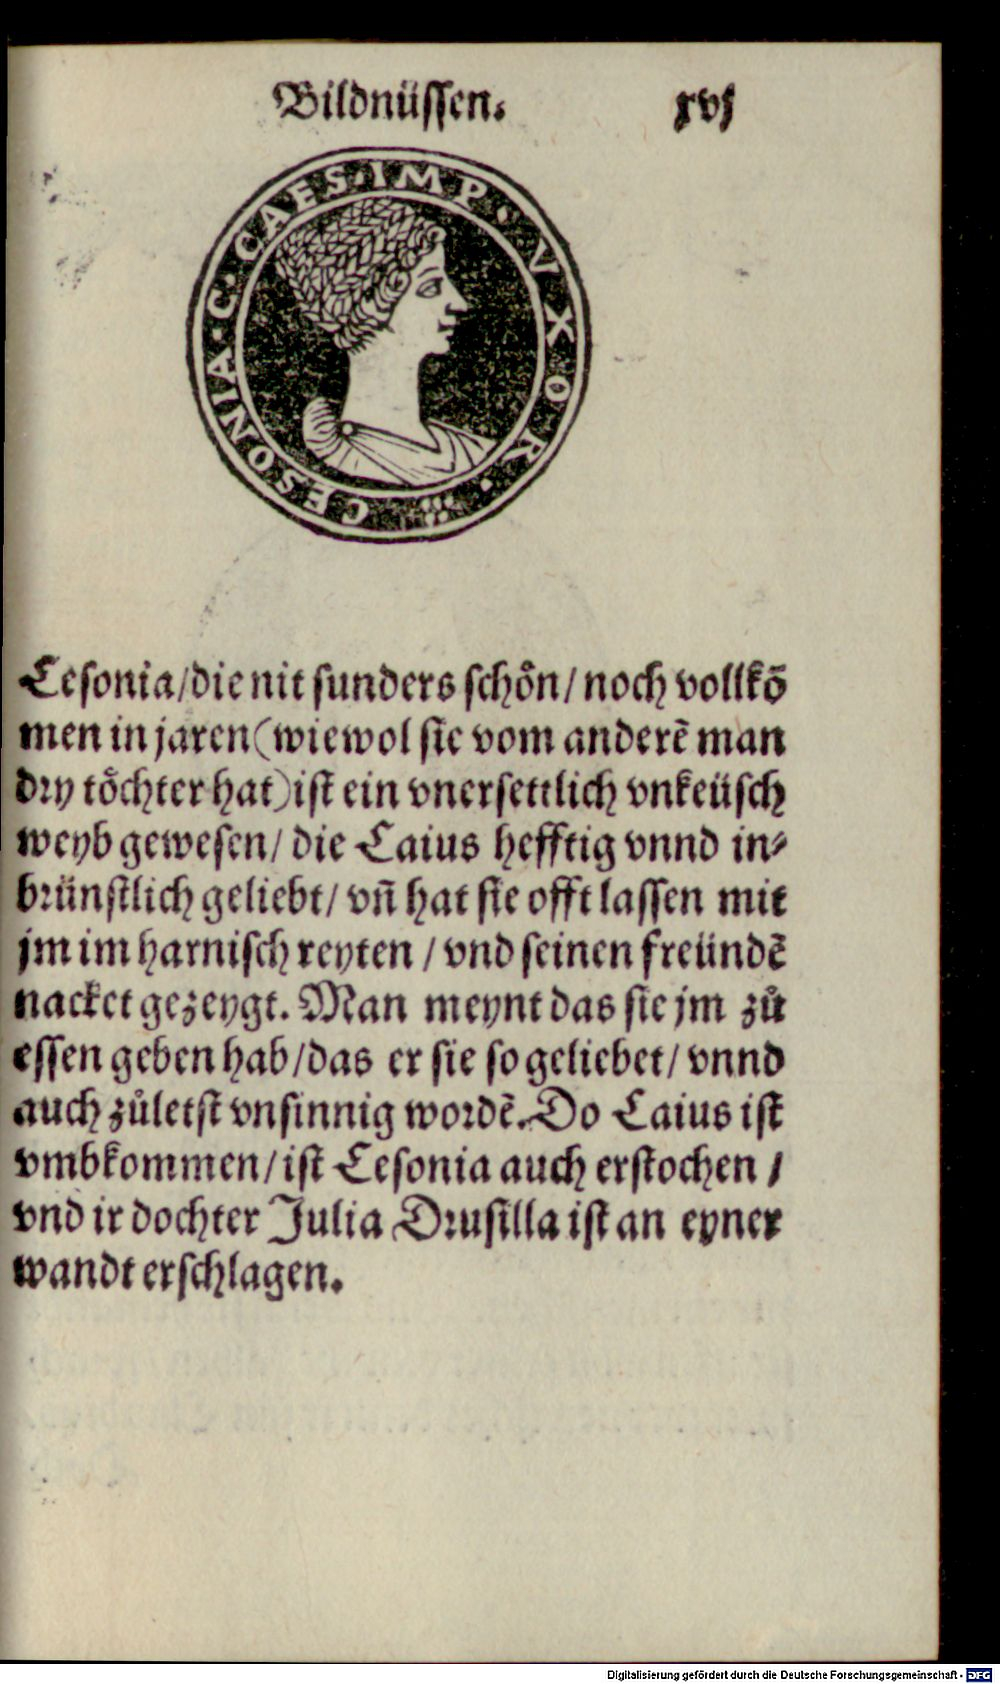 Bildnüssen. xvj
CESONIA · C · CAES · IMP · VXOR ·
Cesonia/die nit sunders schoͤn/ noch vollkō
men in jaren(wiewol sie vom anderē man
dry toͤchter hat)ist ein vnersettlich vnkeüsch
weyb gewesen/ die Caius hefftig vnnd in⸗
brünstlich geliebt/ vn̄ hat sie offt lassen mit
jm im harnisch reyten / vnd seinen freündē
nacket gezeygt. Man meynt das sie jm zuͦ
essen geben hab/das er sie so geliebet/ vnnd
auch zuͦletst vnsinnig wordē. Do Caius ist
vmbkommen/ist Cesonia auch erstochen /
vnd ir dochter Julia Drusilla ist an eyner
wandt erschlagen.
Digitalisierung gefördert durch die Deutsche Forschungsgemeinschaft - DFG